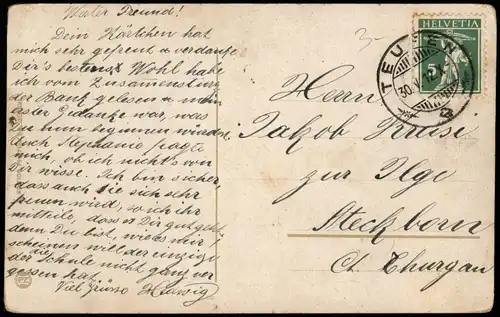 Werter Freund!
Dein Kärtchen hat
mich sehr gefreut u verdanke
Dir's bestens. Wohl habe
ich vom Zusammensturz
der Bank gelesen u mein
erster Gedanke war, was
Du nun beginnen würdest
Auch Stephanie fragte
mich, ob ich nichts von
Dir wisse. Ich bin sicher,
dass auch sie sich sehr
freuen wird, so ich ihr
mitteile, dass es Dir gut geht
denn Du bist, wie es mir
scheinen will der einzige
der die Schule nicht ganz ver
gessen hat.
Viel Grüsse Hedwig
HELVETIA
TEUFEN
30.
Herrn
Jakob
zur Ilge
Steckborn
Ct. Thurgau